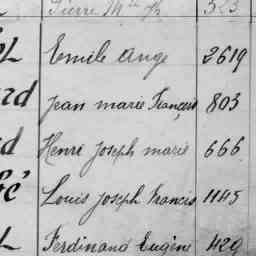 Pierre M
Emile Ange 2619
Jean marie François 803
Henri Joseph marie 666
Louis Joseph Francis 1145
Ferdinand Eugène 429